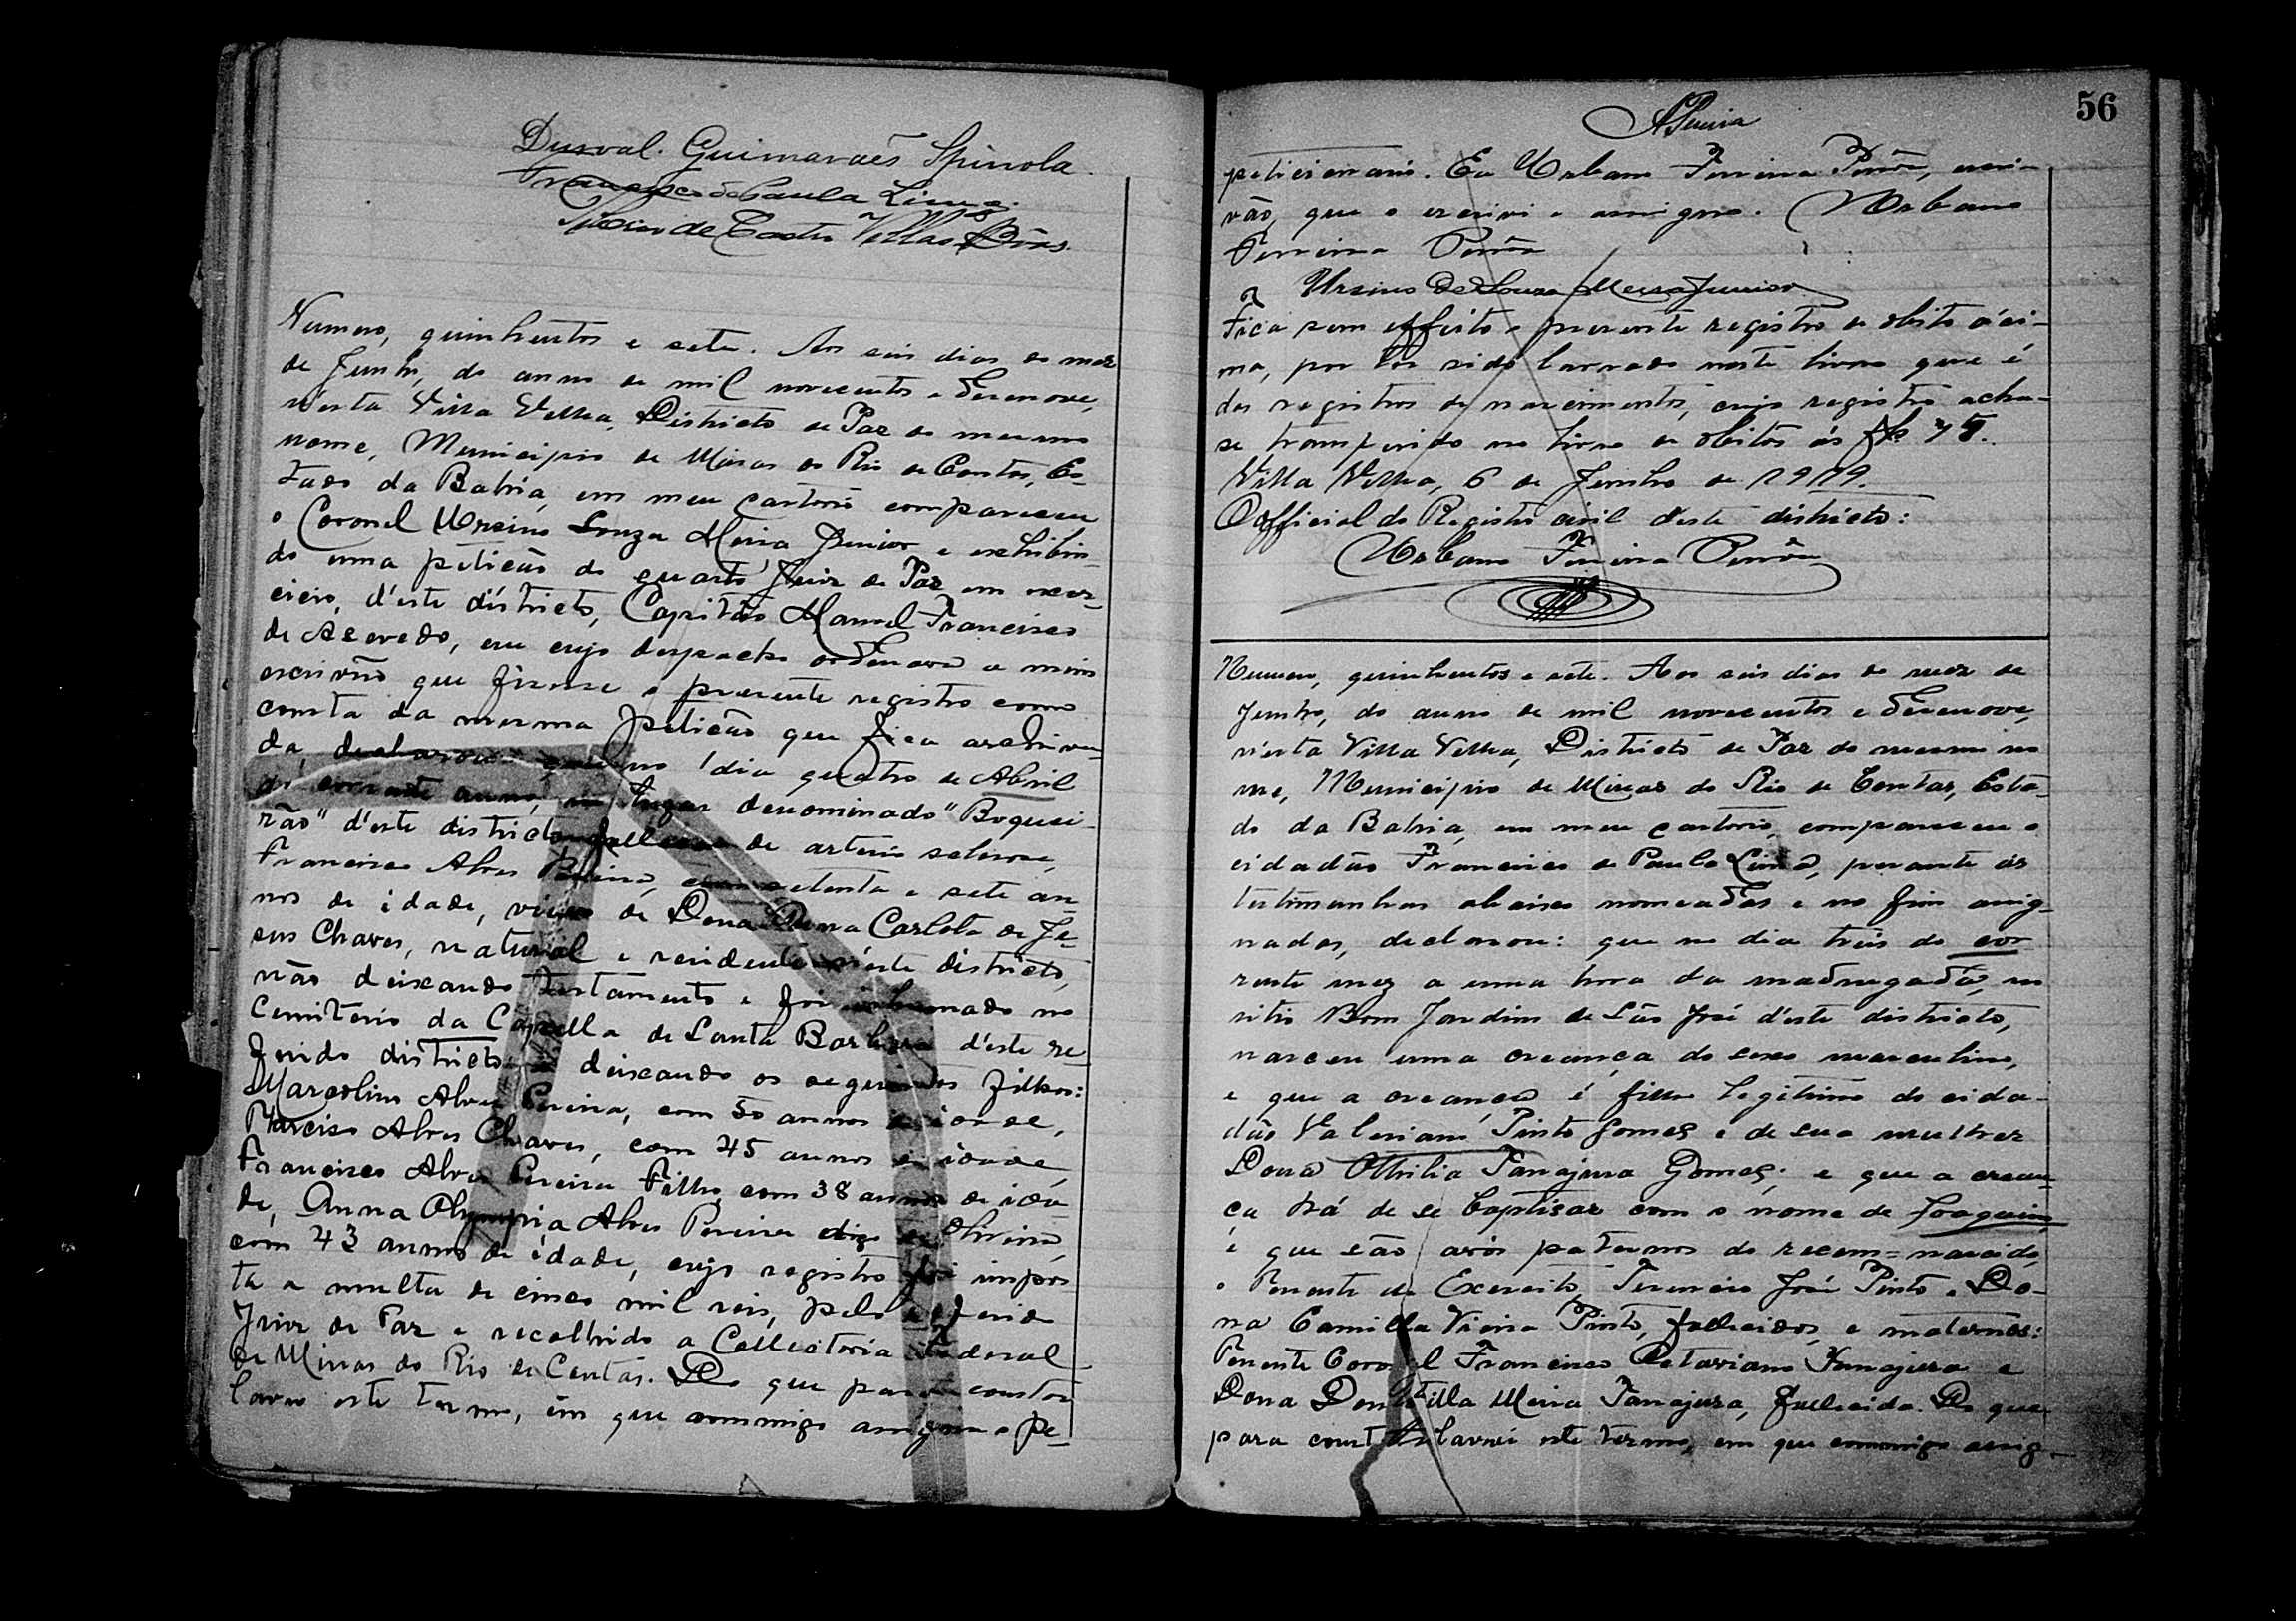 Durval Guimarães Spinola
Francisco de Paula Lima
de Castro Villas Bôas.
Numero, quinhentos e sete. Aos seis dias do mez
de Junho, do anno de mil novecentos e desenove,
n'esta Villa Velha, Districto de Paz do mesmo
nome, Municipio de Minas do Rio de Contas, Es-
tado da Bahia, em meu cartorio compareceu
o Coronel Ursino Souza Meira Junior e exhibin-
do uma petição do quarto Juiz de Paz em exer-
cicio, d'este districto, Capitão Manoel Francisco
de Azevedo, em cujo despacho ordenava a mim
escrivão que fizesse o presente registro como
consta da mesma petição que fica archiva-
da, declarou que no dia quatro de Abril
do corrente anno, no lugar denominado "Boquei-
rão" d'este districto falleceu de arterio sclerose,
Francisco Alves Pereira, com setenta e sete an-
nos de idade, viuvo de Dona Anna Carlota de Je-
sus Chaves, natural e residente n'este districto,
não deixando testamento e foi inhumado no
Cemiterio da Capella de Santa Barbara d'este re-
ferido districto deixando os seguintes filhos:
Marcolino Alves Pereira, com 50 annos de idade,
Narciso Alves Chaves, com 45 annos de idade
Francisco Alves Pereira Filho, com 38 annos de ida-
de, Anna Olympia Alves Pereira digo de Oliveira,
com 43 annos de idade, cujo registro foi impos-
ta a multa de cinco mil reis, pelo referido
Juiz de Paz e recolhido a Collectoria Federal
de Minas do Rio de Contas. Do que para constar
lavro este termo, em que commigo assigna o pe-
56
APereira
peticionario. Eu Urbano Ferreira Pirôa, escri-
vão, que o escrivi e assigno. Urbano
Ferreira
Ursino de Souza Meira Junior
Fica sem effeito o presente registro de obito aci-
ma, por ter sido lavrado neste livro que é
dos registros de nascimentos, cujo registro acha-
se transferido no livro de obitos ás fls
Villa Velha, 6 de Junho de 1919.
O official do Registro civil deste districto:
Urbano Ferreira
Numero, quinhentos e sete. Aos seis dias do mez de
Junho, do anno de mil novecentos e desenove,
n'esta Villa Velha, Districto de Paz do mesmo no
me, Municipio de Minas do Rio de Contas, Esta-
do da Bahia, em meu cartorio, compareceu o
cidadão Francisco de Paula Lima, perante as
testemunhas abaixo nomeadas e no fim assig-
nadas, declarou: que no dia trêis do cor
rente mez a uma hora da madrugada, no
sitio Bom Jardim de São José d'este districto,
nasceu uma creança do sexo masculino,
e que a creança é filho legitimo do cida-
dão Valeriano Pinto Gomes e de sua mulher
Dona Othilia Tanajura Gomes; e que a crean-
ça há de se baptisar com o nome de Joaquim,
e que são avós paternos do recem=nascido,
o Tenente do Exercito, Terencio José Pinto e Do-
na Camilla Vieira Pinto, fallecidos, e maternos:
Tenente Coronel Francisco Octaviano Tanajura e
Dona Domitilla Meira Tanajura, fallecida. Do que
para constar lavrei este termo, em que commigo assig-